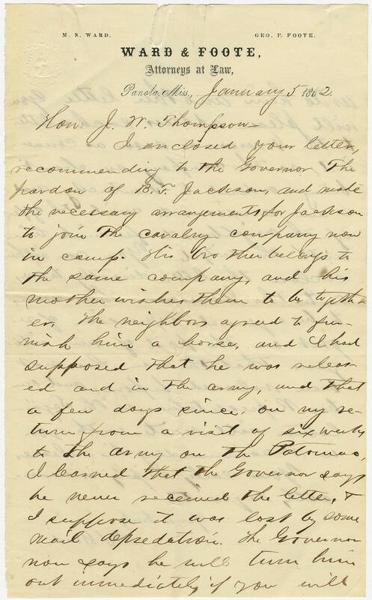 M. S. WARD. GEO. P. FOOTE.
WARD & FOOTE,
Attorneys at Law,
Panola, Miss, January 5 1862
Hon J. W. Thompson
I enclosed your letter,
recommending to the Governor the
pardon of B. F. Jackson, and made
the necessary arrangements for Jackson
to join the cavalry company now
in camp. His brother belongs to
the same company, and his
mother wishes them to be togeth-
er. The neighbors agreed to fur-
nish him a horse, and I had
supposed that he was releas-
ed and in the army, until
a few days since, on my re-
turn from a visit of six weeks
to the army on the Potomac,
I learned that the Governor says
he never received the letter, &
I suppose it was lost by some
mail depredation. The Governor
now says he will turn him
out immediately if you will